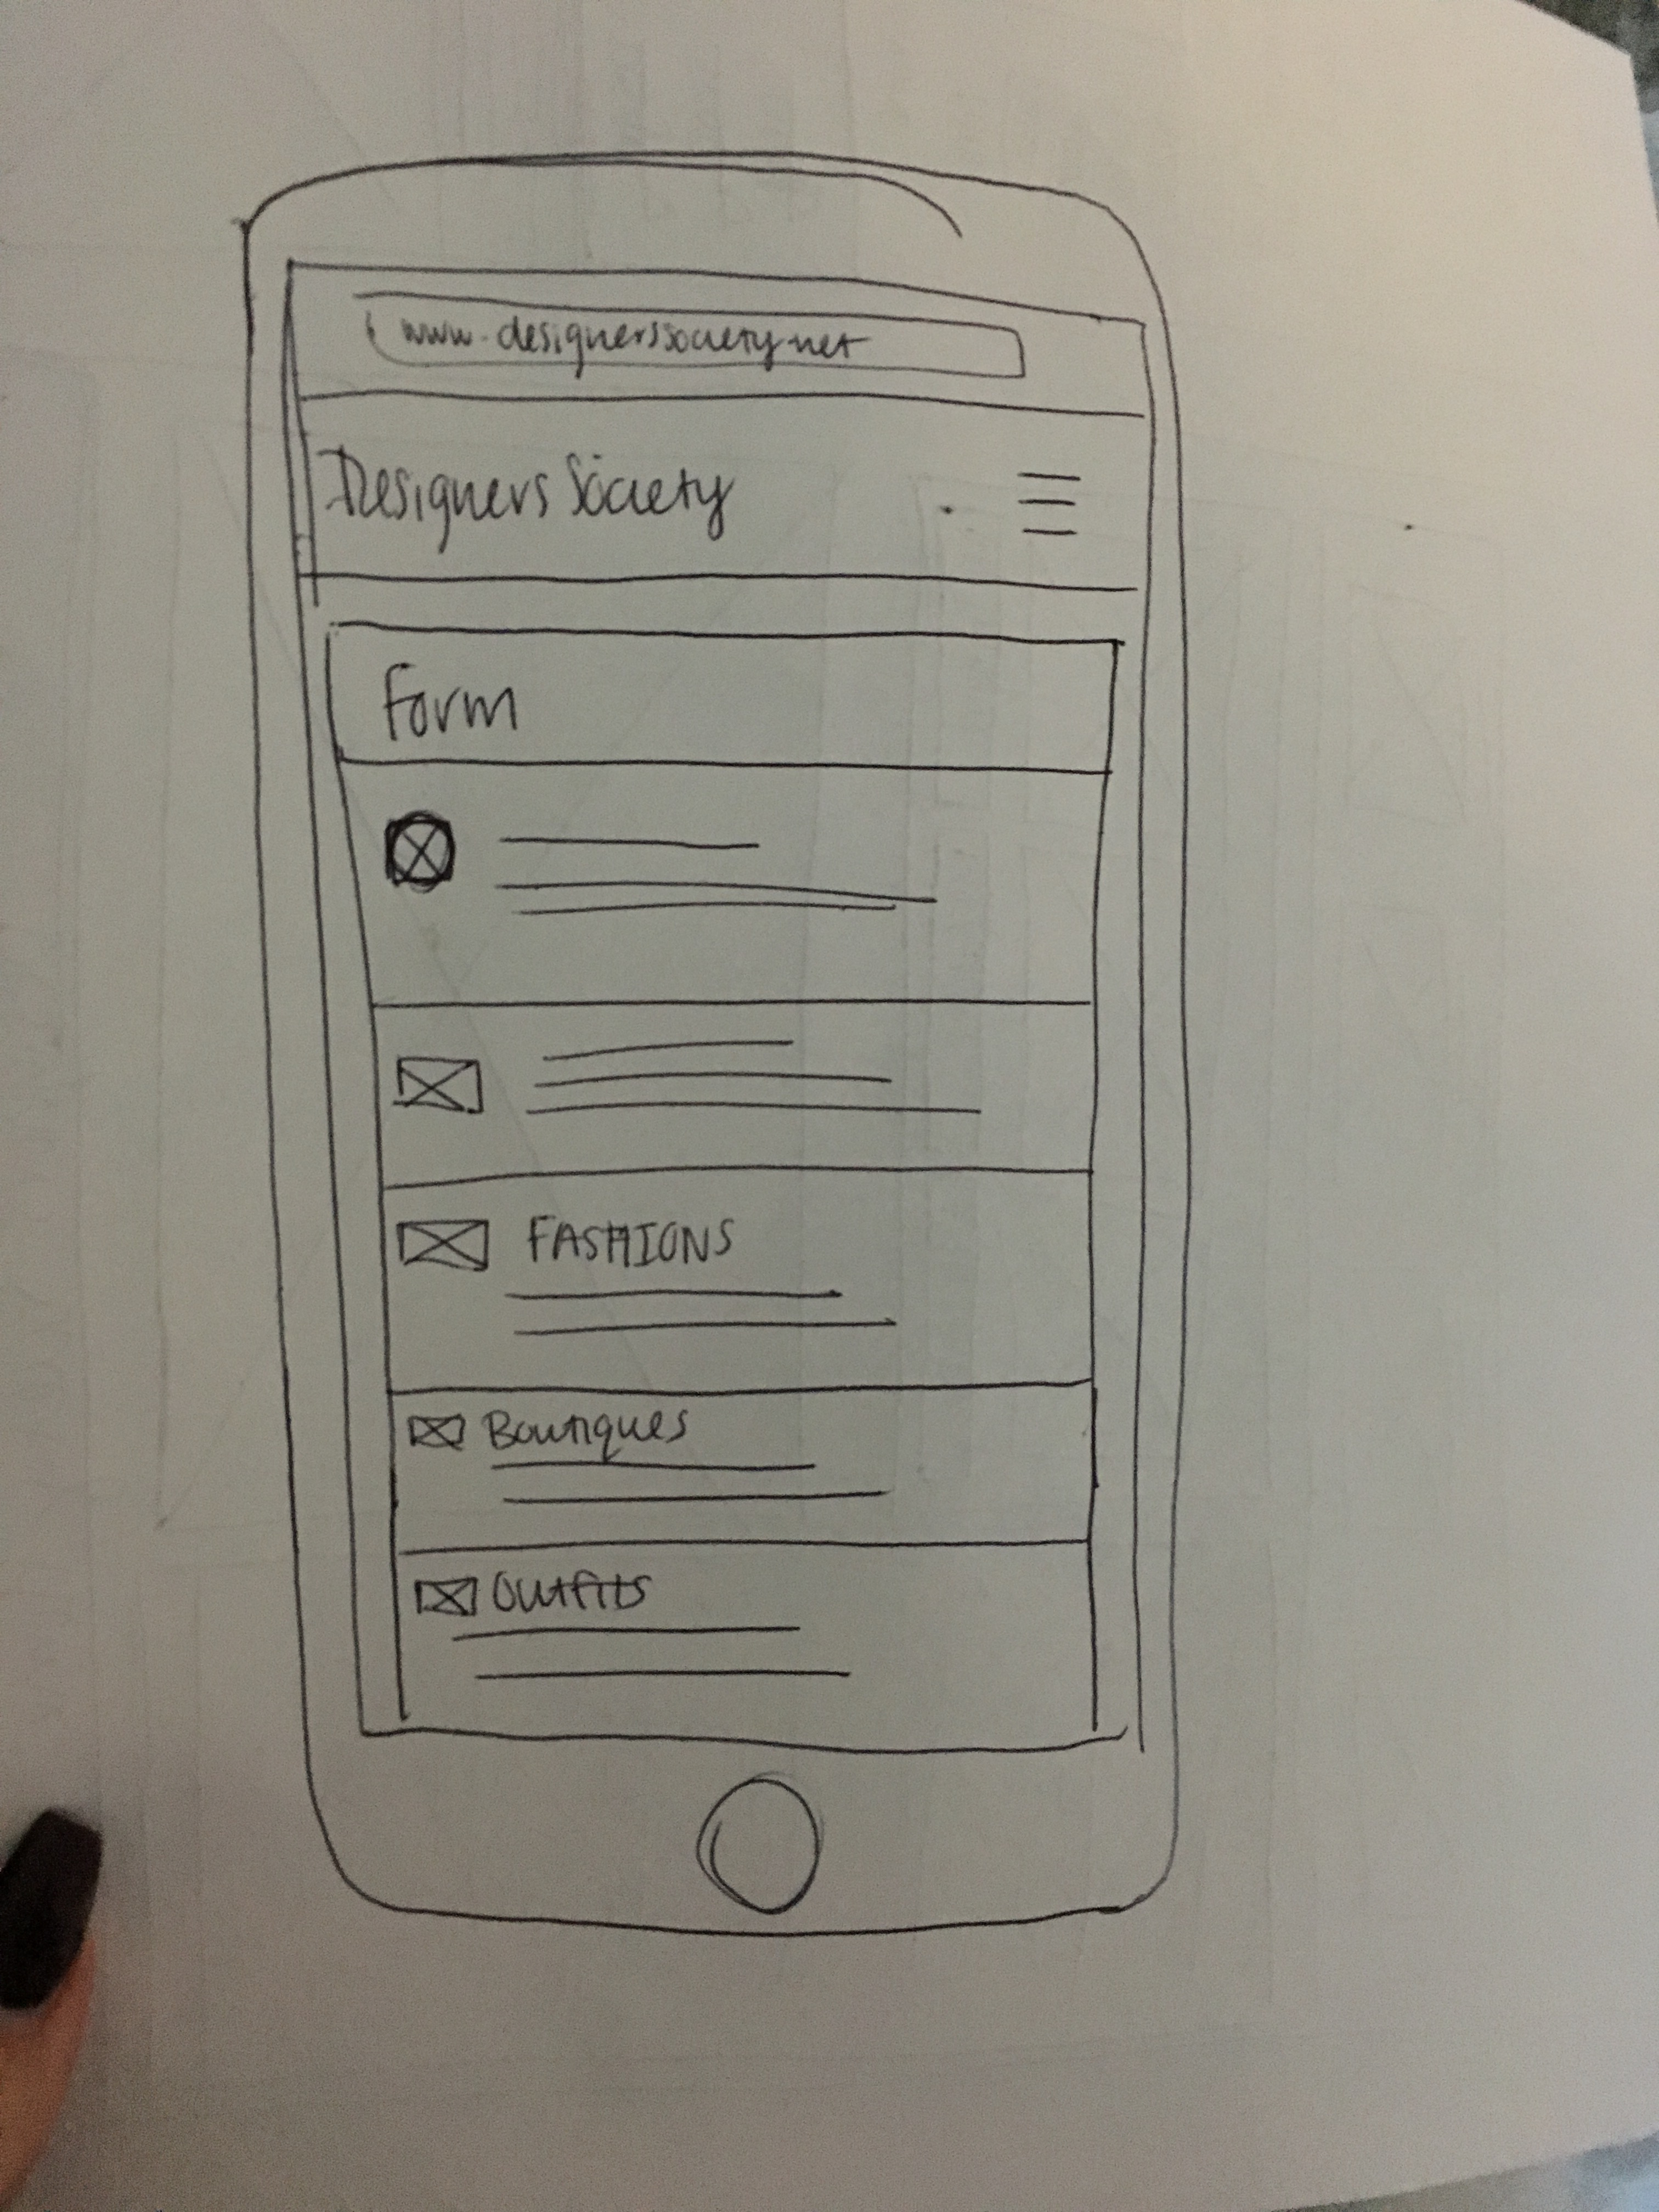 www.designerssociety.net
Designers Society
Form
FASHIONS
Boutiques
Outfits